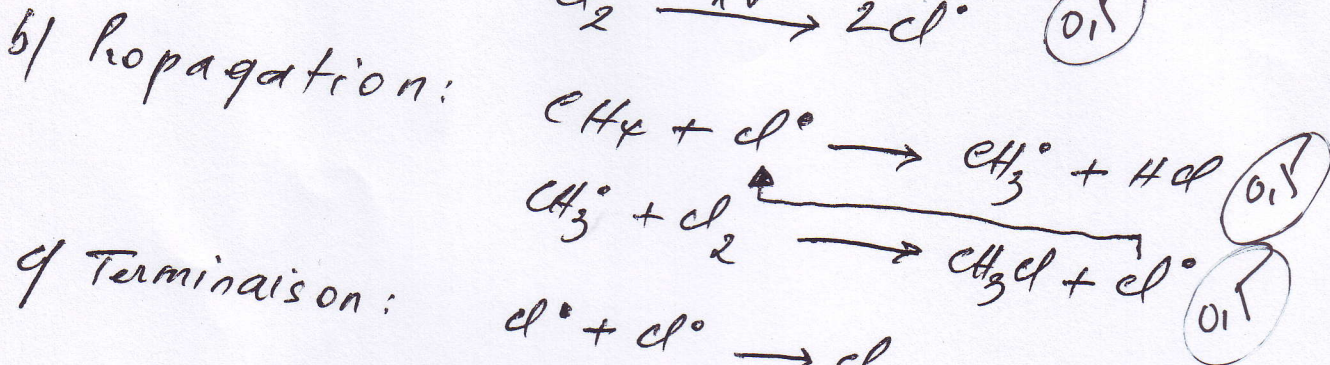 2 → 2Cl° 0,5
b/ Propagation:
CH4 + Cl° → CH3° + HCl 0,5
CH3° + Cl2 → CH3Cl + Cl° 0,5
c/ Terminaison:
Cl° + Cl° → Cl